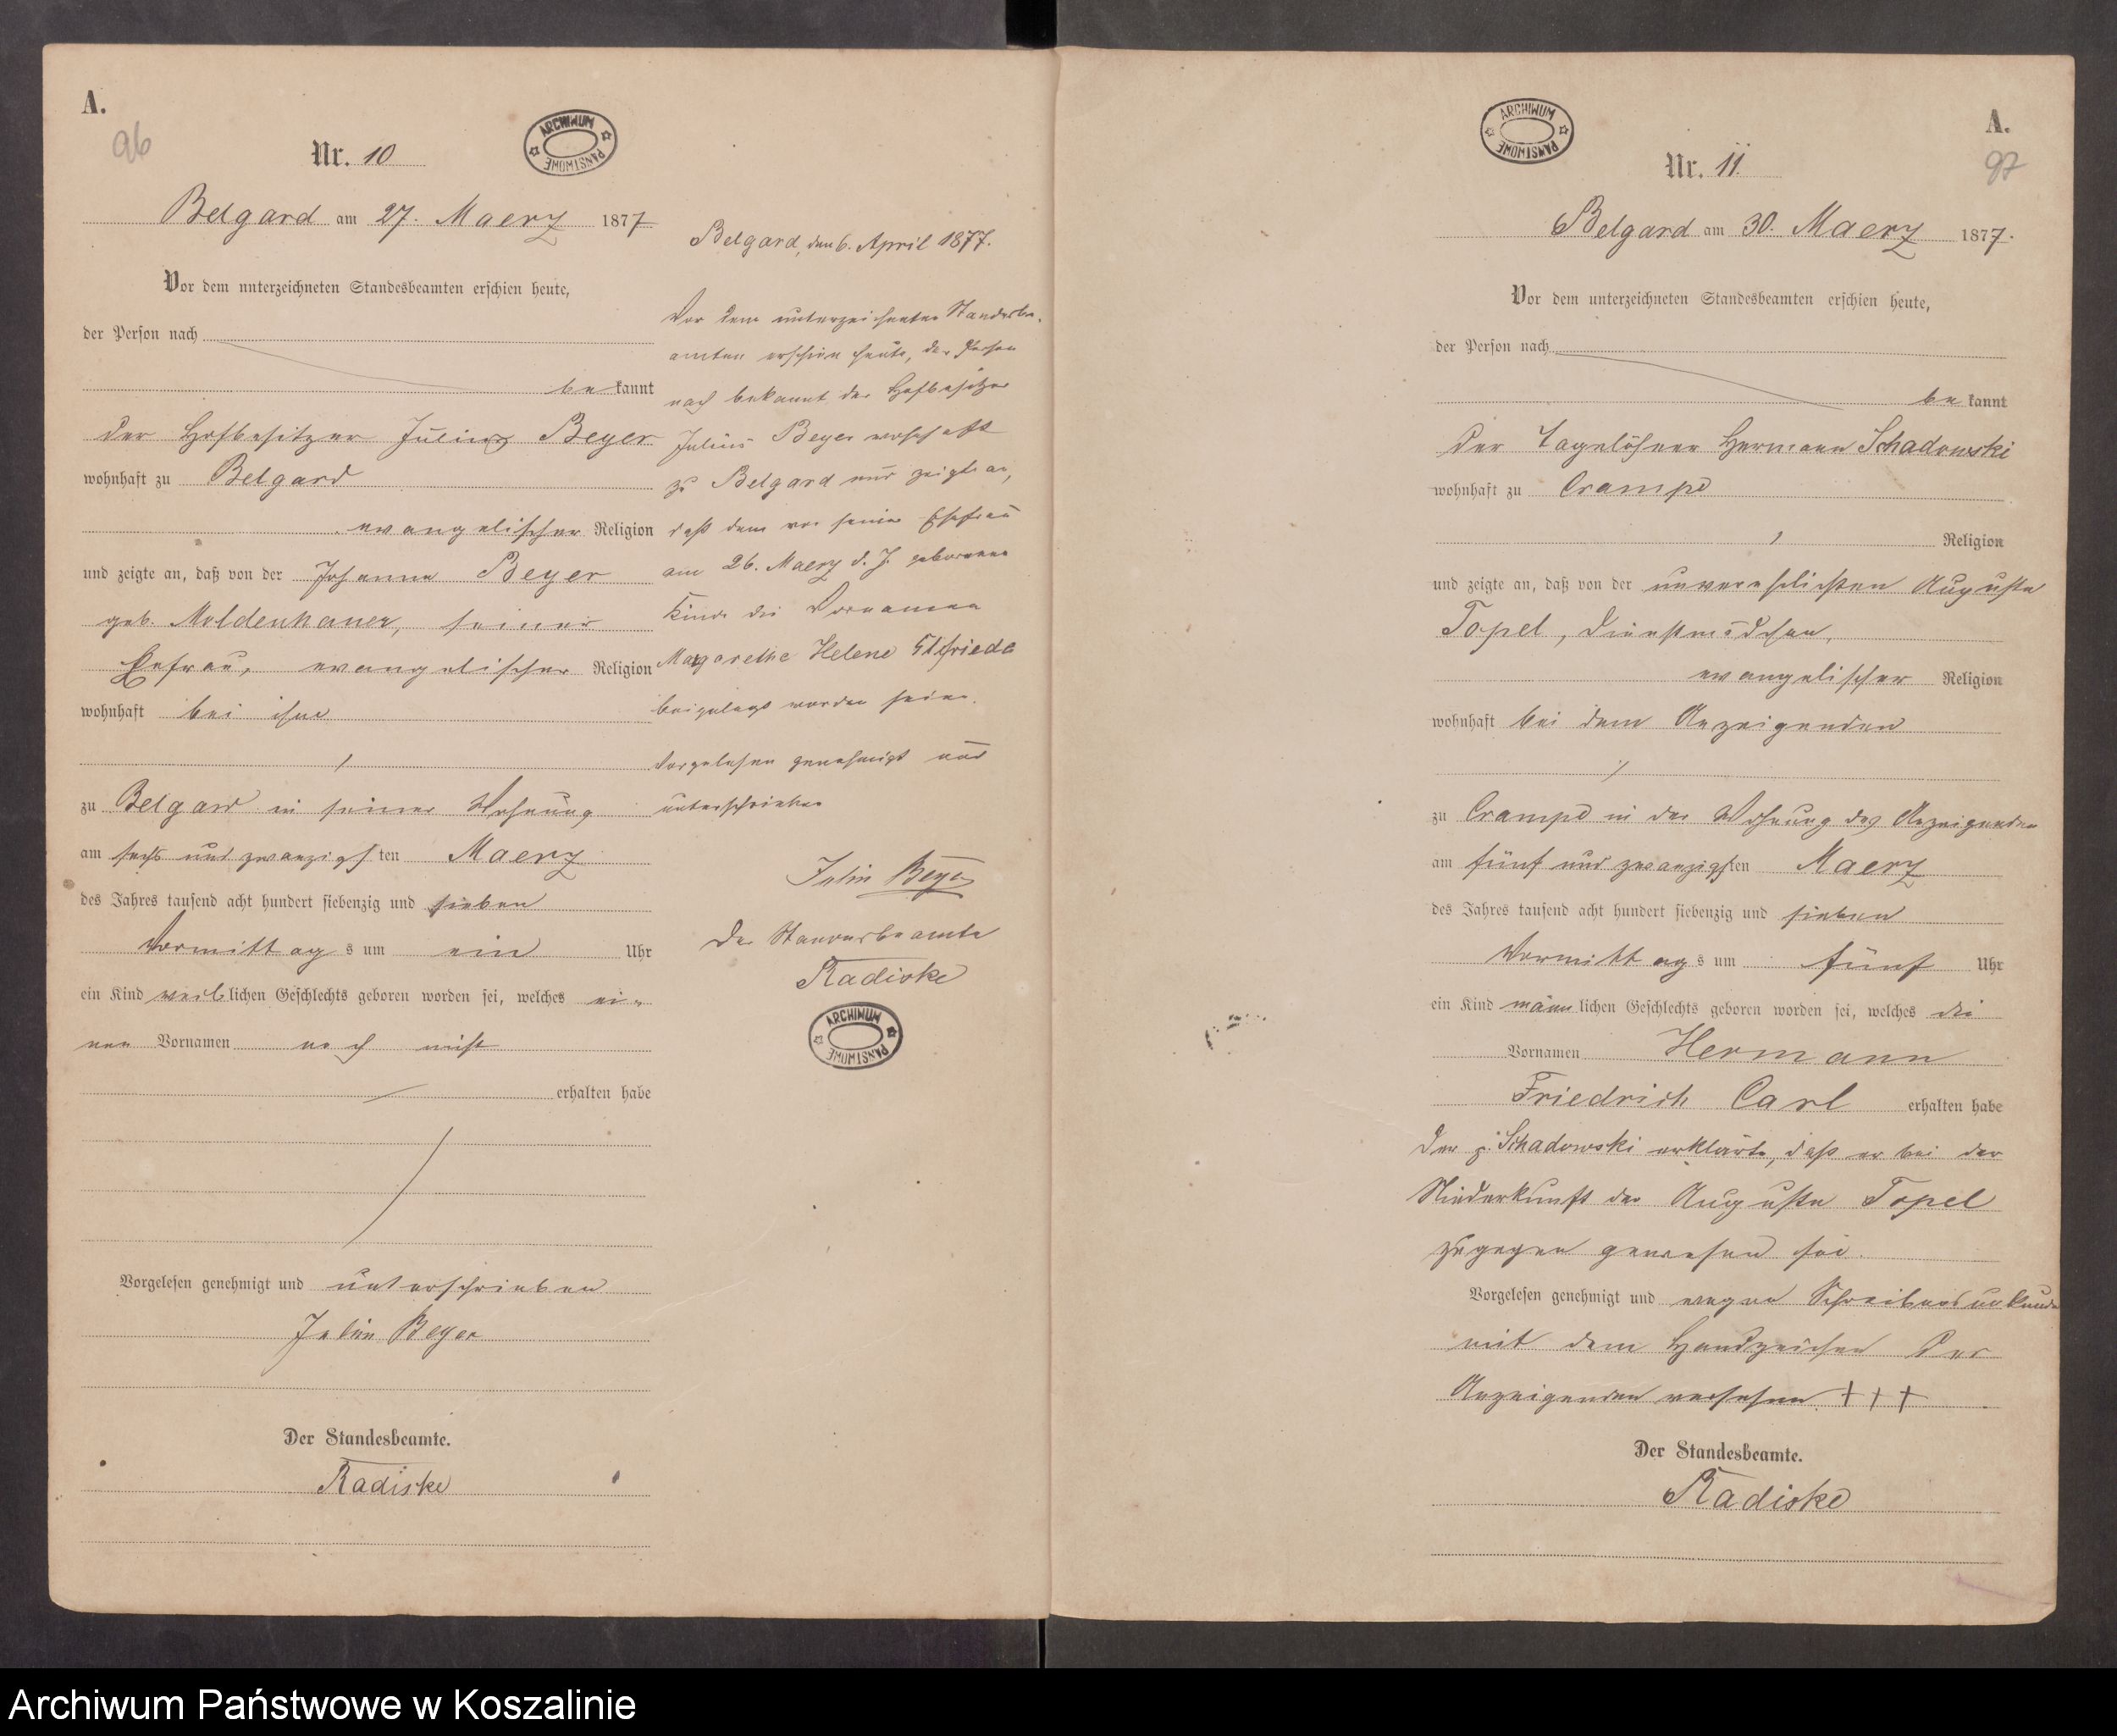 A.
96
Nr. 10
ARCHIWUM PAŃSTWOWE
Belgard am 27. Maerz 1877
Vor dem unterzeichneten Standesbeamten erschien heute,
der Person nach
be kannt
der Hofbesitzer Julius Beyer
wohnhaft zu Belgard
evangelischer Religion
und zeigte an, daß von der Johanna Beyer
geb. Moldenhauer, seiner
Ehefrau, evangelischer Religion
wohnhaft bei ihm
zu Belgard in seiner Wohnung
am sechs und zwanzigsten Maerz
des Jahres tausend acht hundert siebenzig und sieben
Vormittags um ein Uhr
ein Kind weiblichen Geschlechts geboren worden sei, welches ei-
nen Vornamen noch nicht
erhalten habe
Vorgelesen genehmigt und unterschrieben
Julius Beyer
Der Standesbeamte.
Radiske
Belgard, den 6. April 1877.
Vor dem unterzeichneten Standesbe-
amten erschien heute, der Person
nach bekannt der Hofbesitzer
Julius Beyer wohnhaft
zu Belgard und zeigte an,
daß dem von seiner Ehefrau
am 26. Maerz d. J. geborenen
Kinde die Vornamen
Margarethe Helene Elfriede
beigelegt worden seien.
Vorgelesen genehmigt und
unterschrieben
Julius Beyer
Der Standesbeamte
Radiske
ARCHIWUM PAŃSTWOWE
ARCHIWUM PAŃSTWOWE
A.
97
Nr. 11.
Belgard am 30. Maerz 1877.
Vor dem unterzeichneten Standesbeamten erschien heute,
der Person nach
be kannt
der Tagelöhner Hermann Schadowski
wohnhaft zu Crampe
Religion
und zeigte an, daß von der unverehelichten Auguste
Topel, Dienstmädchen,
evangelischer Religion
wohnhaft bei dem Anzeigenden
zu Crampe in der Wohnung des Anzeigenden
am fünf und zwanzigsten Maerz
des Jahres tausend acht hundert siebenzig und sieben
Vormittags um fünf Uhr
ein Kind männlichen Geschlechts geboren worden sei, welches die
Vornamen Hermann
Friedrich Carl erhalten habe
Der p. Schadowski erklärte, daß er bei der
Niederkunft der Auguste Topel
zugegen gewesen sei.
Vorgelesen genehmigt und wegen Schreibensunkunde
mit dem Handzeichen des
Anzeigenden versehen. + + +
Der Standesbeamte.
Radiske
Archiwum Państwowe w Koszalinie